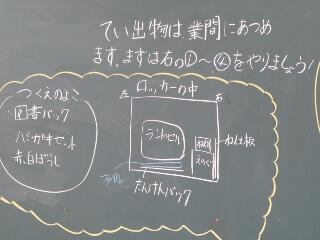 てい出物は、業間にあつめ
ます。まずは右の①〜④をやりましょう!
つくえのよこ
・図書バック
・ハミガキセット
・赤白ぼうし
ロッカーの中
左
右
ランドセル
ねん土板
えのぐ
たんけんバック